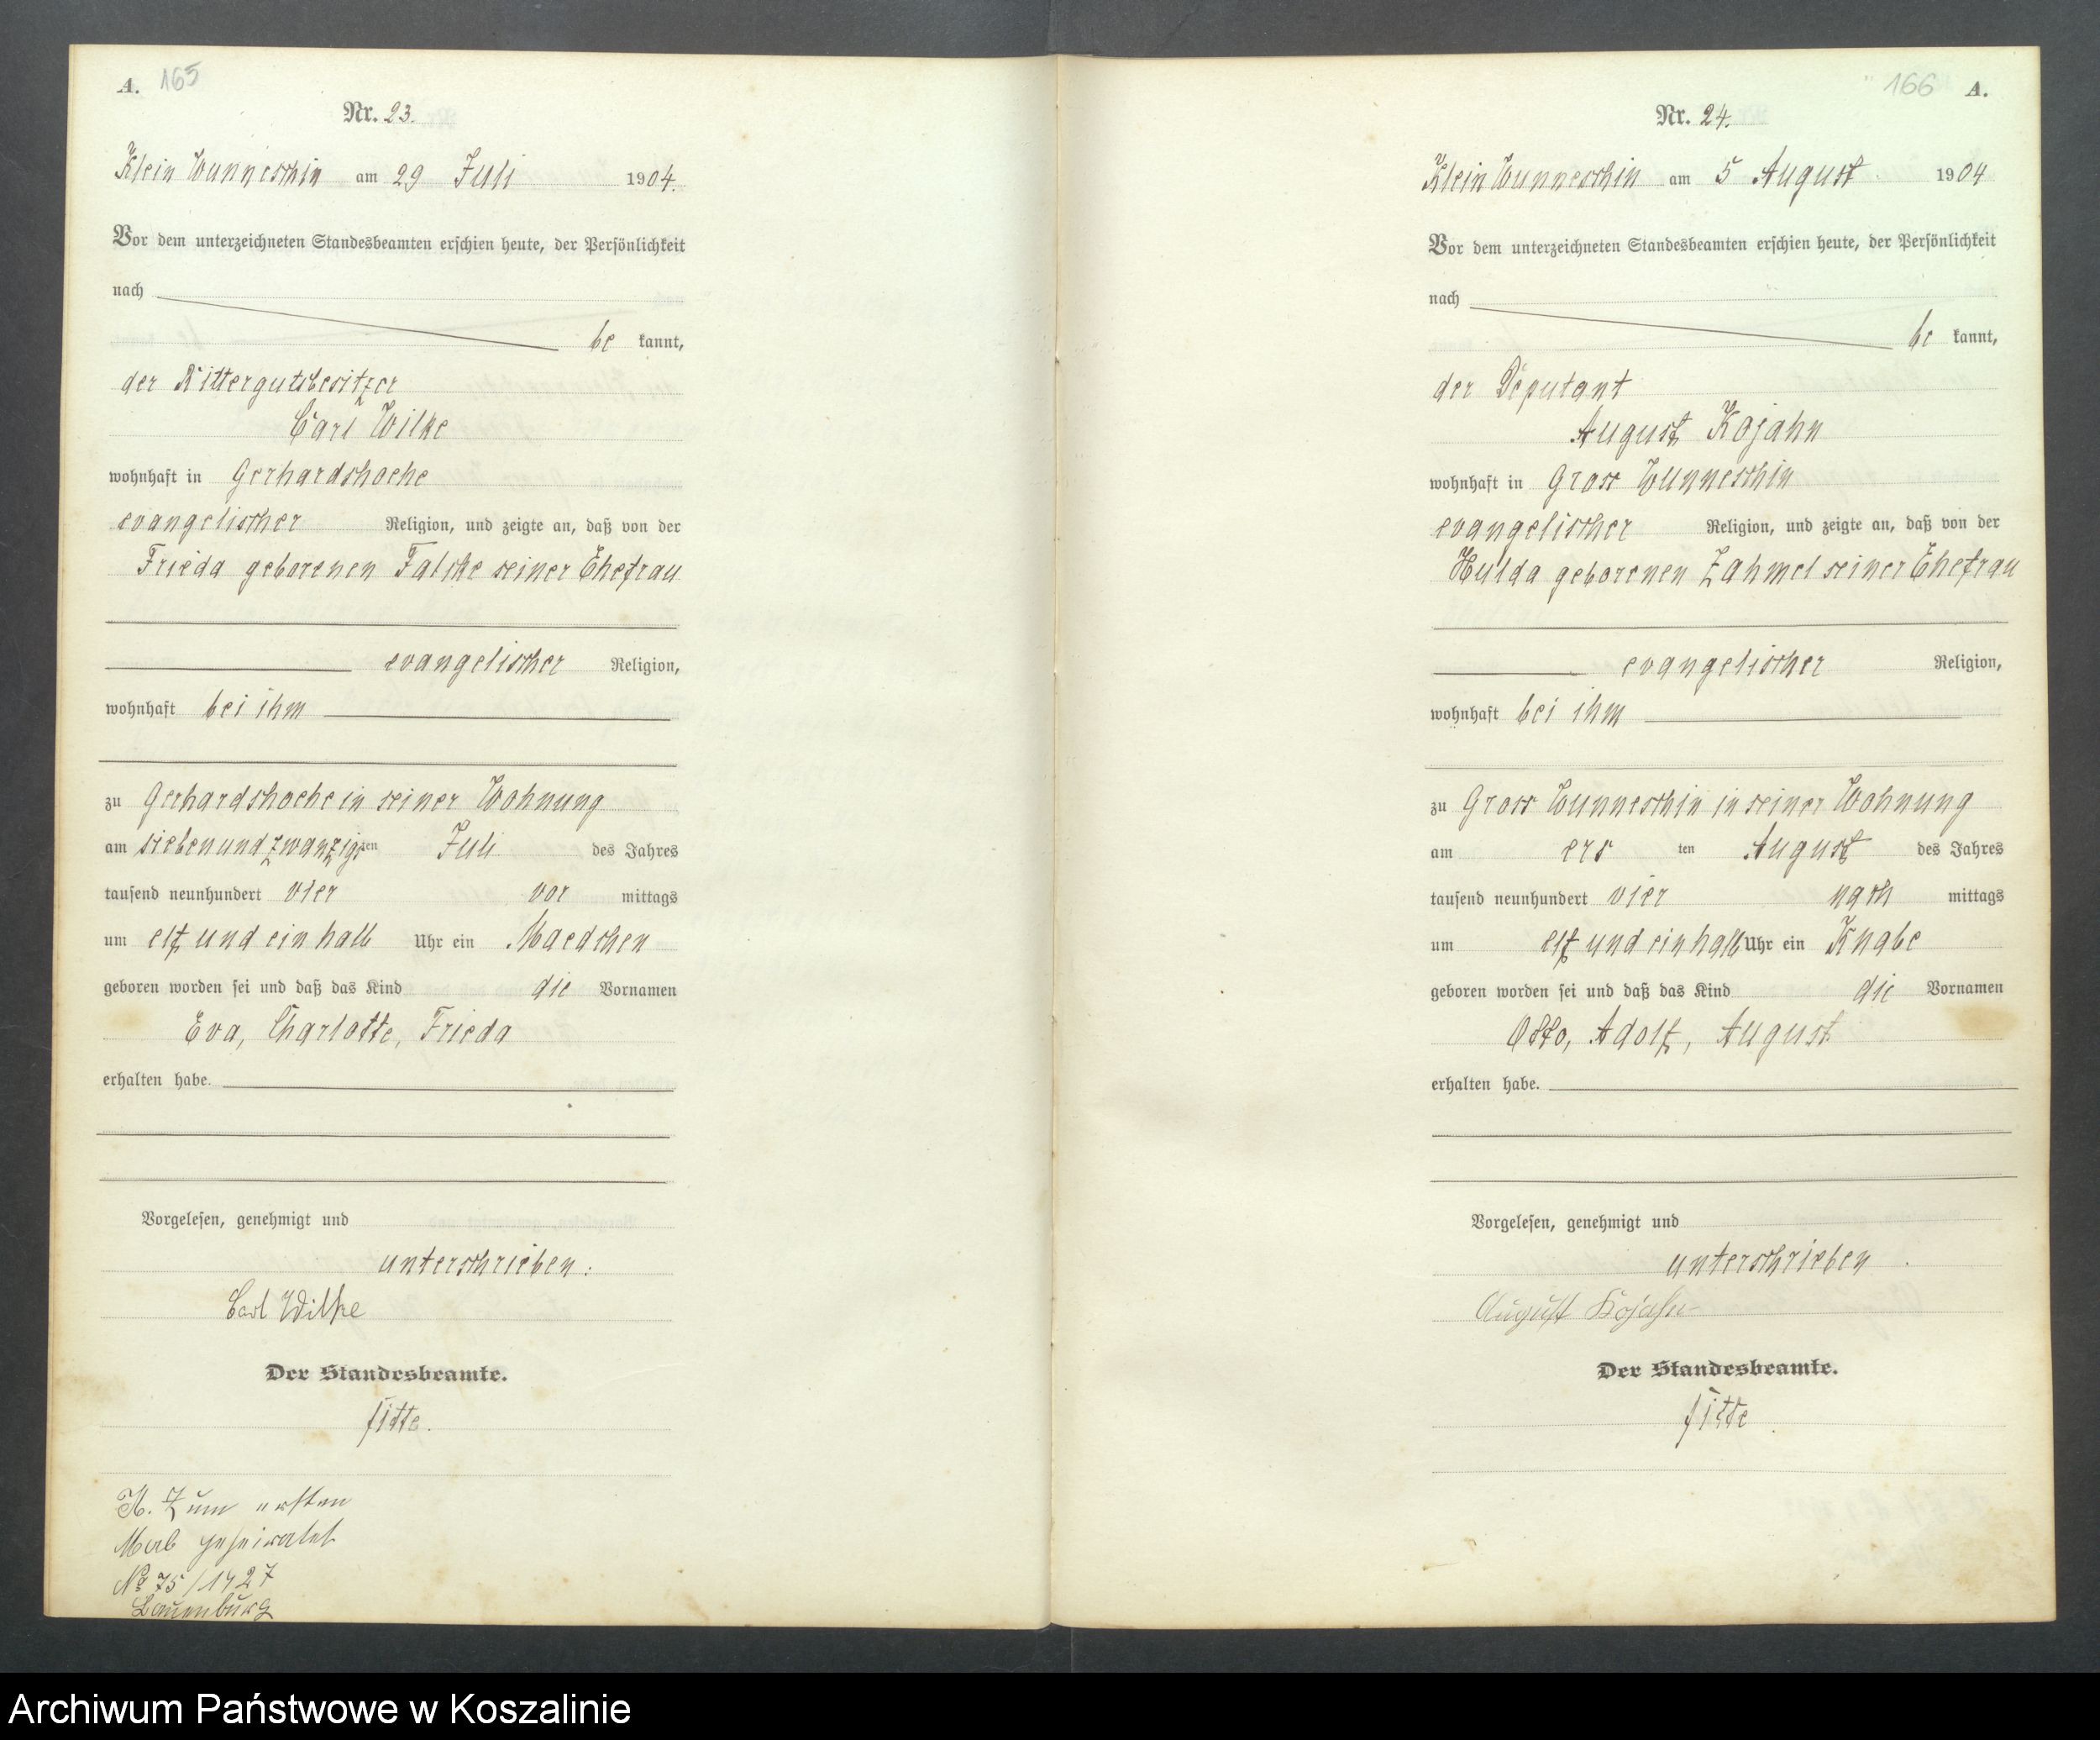 A. 165
Nr. 23.
Klein Wunneschin am 29 Juli 1904.
Vor dem unterzeichneten Standesbeamten erschien heute, der Persönlichkeit
nach
be kannt,
der Rittergutsbesitzer
Carl Wilke
wohnhaft in Gerhardshoehe
evangelischer Religion, und zeigte an, daß von der
Frieda geborenen Falcke seiner Ehefrau
evangelischer Religion,
wohnhaft bei ihm
zu Gerhardshoehe in seiner Wohnung
am siebenundzwanzigsten Juli des Jahres
tausend neunhundert vier vor mittags
um elf und ein halb Uhr ein Maedchen
geboren worden sei und daß das Kind die Vornamen
Eva, Charlotte, Frieda
erhalten habe.
Vorgelesen, genehmigt und
unterschrieben:
Carl Wilke
Der Standesbeamte.
Fitte.
H. Zum ersten
Mal geheiratet
No 75/1927
Lauenburg
166 A.
Nr. 24.
Klein Wunneschin am 5 August 1904
Vor dem unterzeichneten Standesbeamten erschien heute, der Persönlichkeit
nach
be kannt,
der Deputant
August Kojahn
wohnhaft in Gross Wunneschin
evangelischer Religion, und zeigte an, daß von der
Hulda geborenen Zahmel seiner Ehefrau
evangelischer Religion,
wohnhaft bei ihm
zu Gross Wunneschin in seiner Wohnung
am ers ten August des Jahres
tausend neunhundert vier nach mittags
um elf und ein halb Uhr ein Knabe
geboren worden sei und daß das Kind die Vornamen
Otto, Adolf, August
erhalten habe.
Vorgelesen, genehmigt und
unterschrieben
August Kojahn
Der Standesbeamte.
Fitte
Archiwum Państwowe w Koszalinie